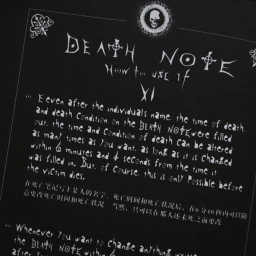 DEATH NOTE
How to use it
XI
Even after the individual's name, the time of death,
and death condition on the DEATH NOTE were filled
out, the time and condition of death can be altered
as many times as you want, as long as it is changed
within 6 minutes and 4 seconds from the time it
was filled in. But, of course, this is only possible before
the victim dies.
在死亡笔记写上某人的名字、死亡时间和死亡状况后，在6分40秒内可以随
意更改死亡时间和死亡状况。当然，只可以在那人还未死之前更改
Whenever you want to change anything
the DEATH NOTE within
after